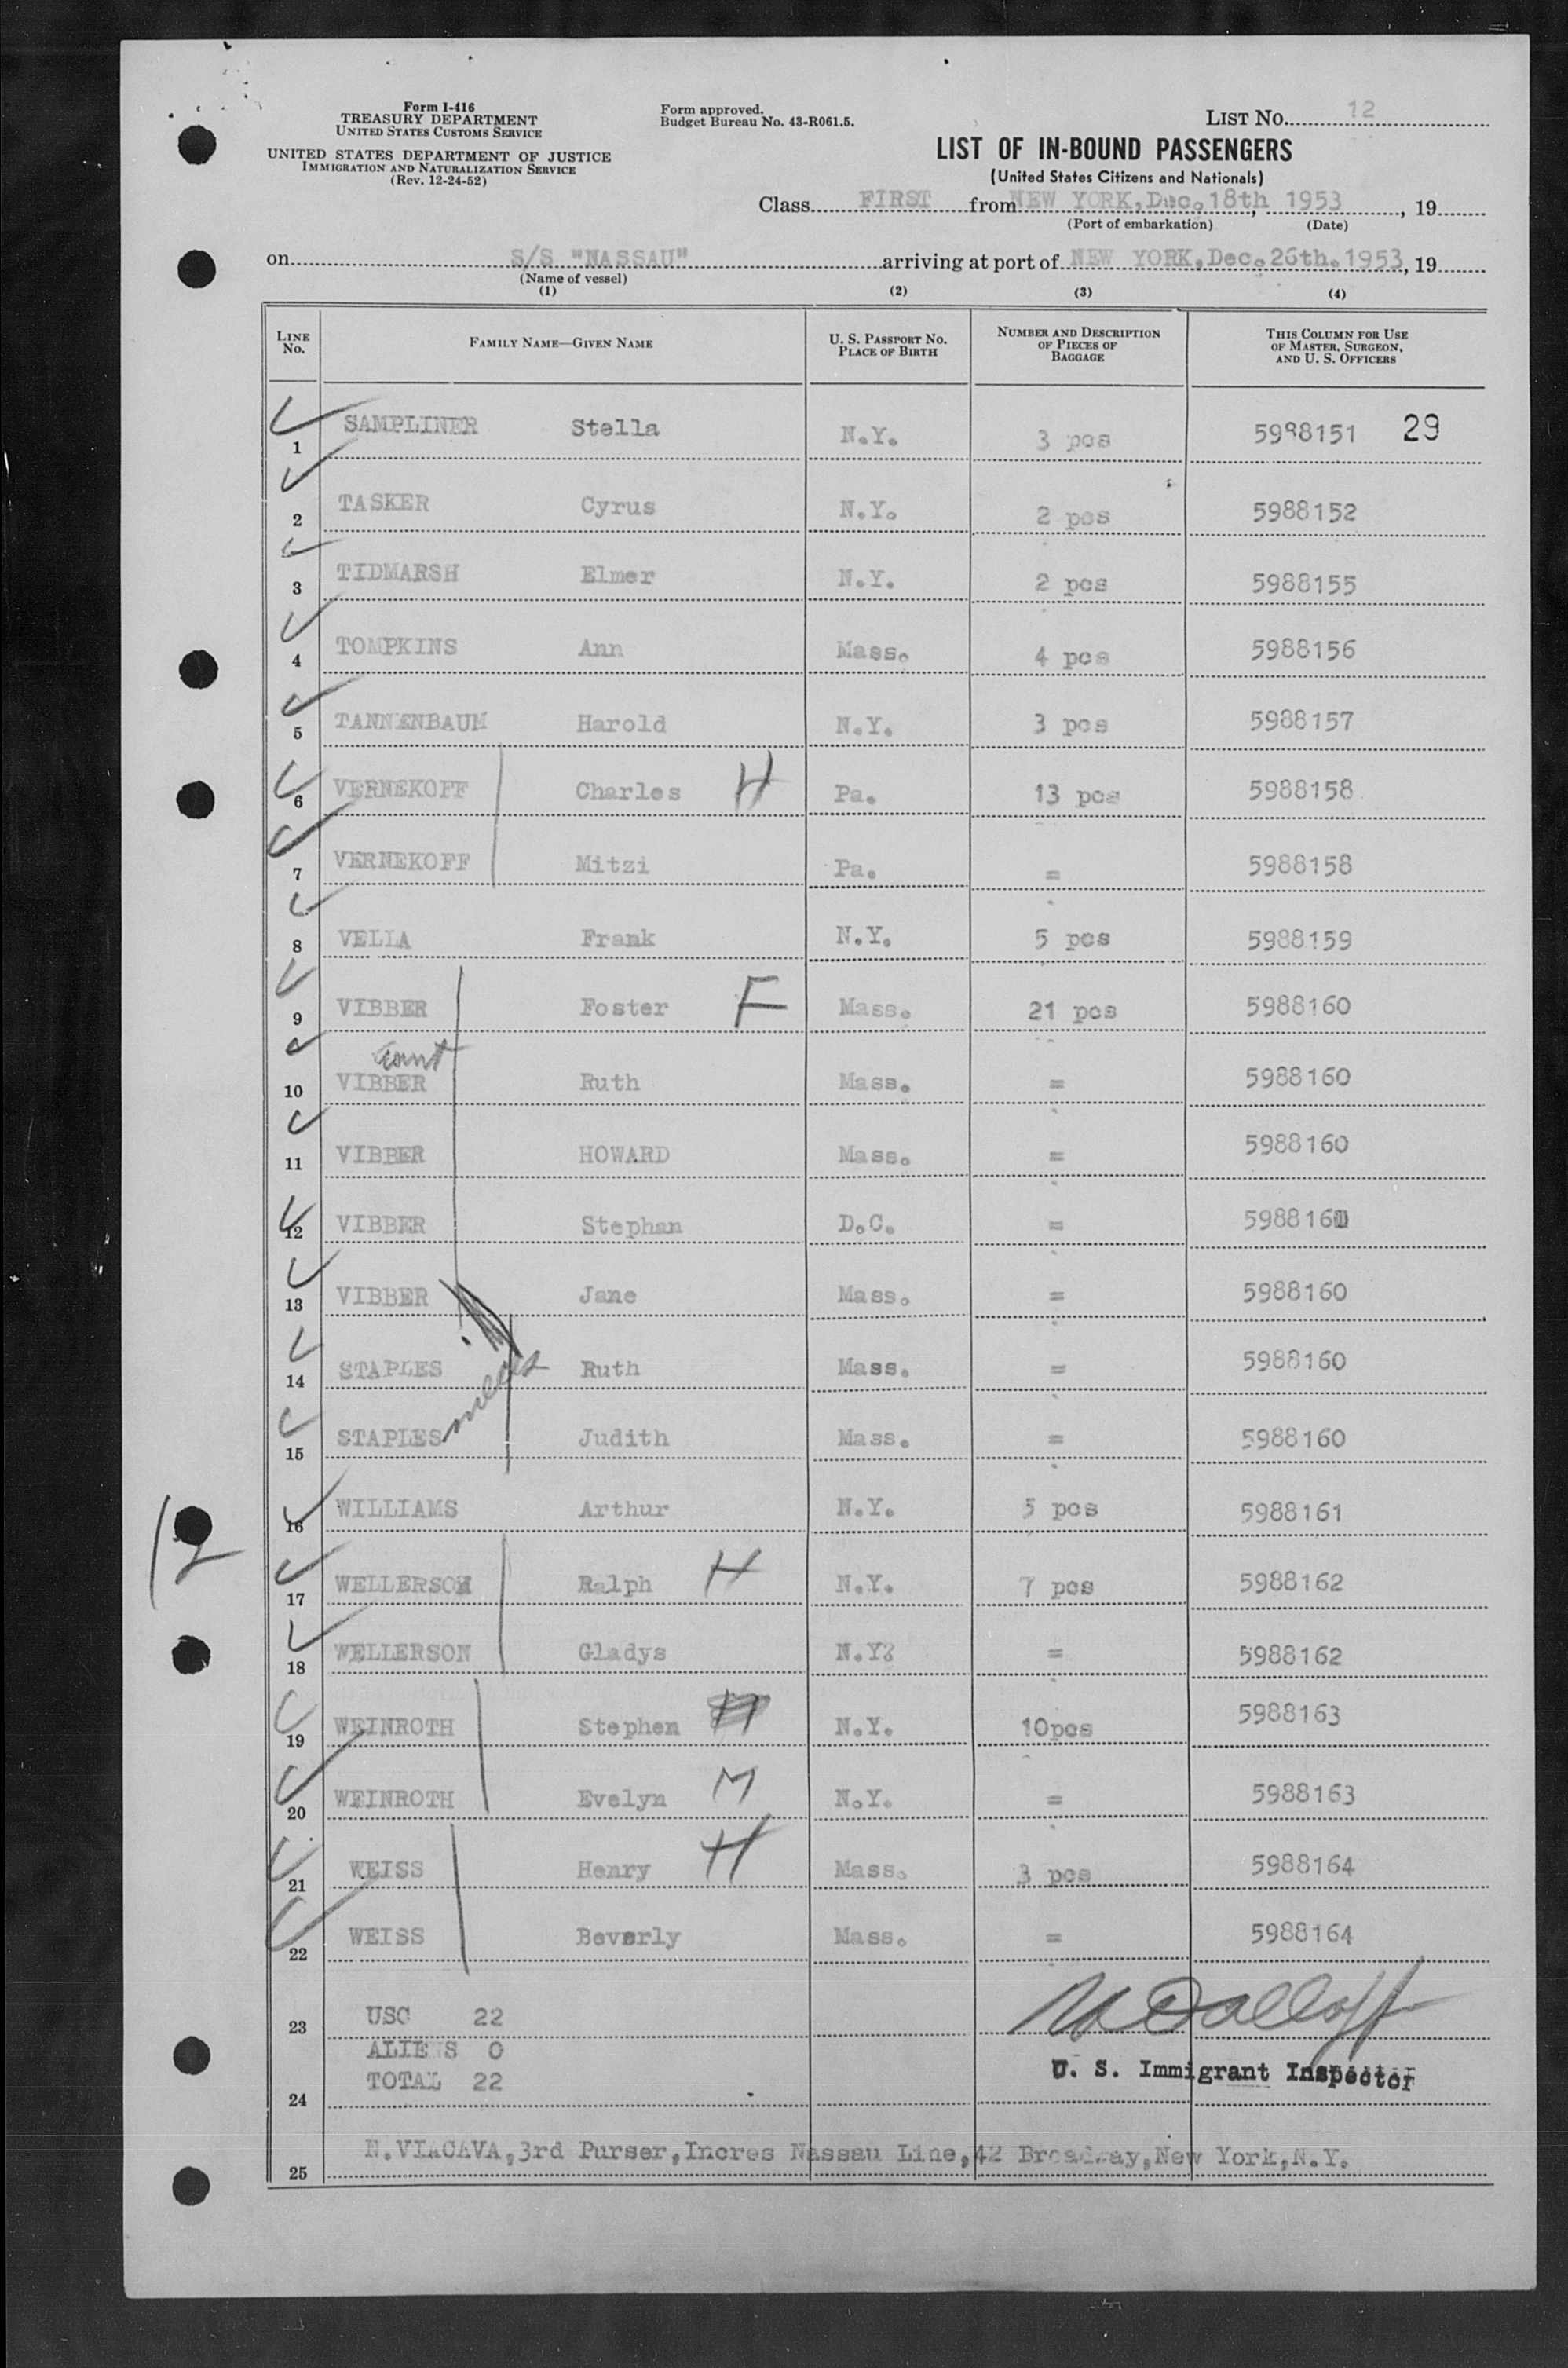 Form I-416
TREASURY DEPARTMENT
UNITED STATES CUSTOMS SERVICE
UNITED STATES DEPARTMENT OF JUSTICE
IMMIGRATION AND NATURALIZATION SERVICE
(Rev. 12-24-52)
Form approved.
Budget Bureau No. 43-R061.5.
LIST NO. 12
LIST OF IN-BOUND PASSENGERS
(United States Citizens and Nationals)
Class FIRST from NEW YORK, Dec. 18th 1953, 19
(Port of embarkation) (Date)
on S/S "NASSAU" arriving at port of NEW YORK, Dec. 26th. 1953, 19
(Name of vessel)
(1) (2) (3) (4)
LINE NO. FAMILY NAME—GIVEN NAME U. S. PASSPORT NO. PLACE OF BIRTH NUMBER AND DESCRIPTION OF PIECES OF BAGGAGE THIS COLUMN FOR USE OF MASTER, SURGEON, AND U. S. OFFICERS
1 SAMPLINER Stella N.Y. 3 pcs 5988151 29
2 TASKER Cyrus N.Y. 2 pcs 5988152
3 TIDMARSH Elmer N.Y. 2 pcs 5988155
4 TOMPKINS Ann Mass. 4 pcs 5988156
5 TANNENBAUM Harold N.Y. 3 pcs 5988157
6 VERNEKOFF Charles H Pa. 13 pcs 5988158
7 VERNEKOFF Mitzi Pa. = 5988158
8 VELLA Frank N.Y. 5 pcs 5988159
9 VIBBER Foster F Mass. 21 pcs 5988160
10 VIBBER Ruth Mass. = 5988160
11 VIBBER HOWARD Mass. = 5988160
12 VIBBER Stephan D.C. = 5988160
13 VIBBER Jane Mass. = 5988160
14 STAPLES Ruth Mass. = 5988160
15 STAPLES Judith Mass. = 5988160
16 WILLIAMS Arthur N.Y. 5 pcs 5988161
17 WELLERSON Ralph H N.Y. 7 pcs 5988162
18 WELLERSON Gladys N.Y. = 5988162
19 WEINROTH Stephen H N.Y. 10pcs 5988163
20 WEINROTH Evelyn M N.Y. = 5988163
21 WEISS Henry H Mass. 3 pcs 5988164
22 WEISS Beverly Mass. = 5988164
23 USC 22
ALIENS 0
U. S. Immigrant Inspector
24 TOTAL 22
25 N.VIACAVA,3rd Purser,Incres Nassau Line,42 Broadway,New York,N.Y.
12